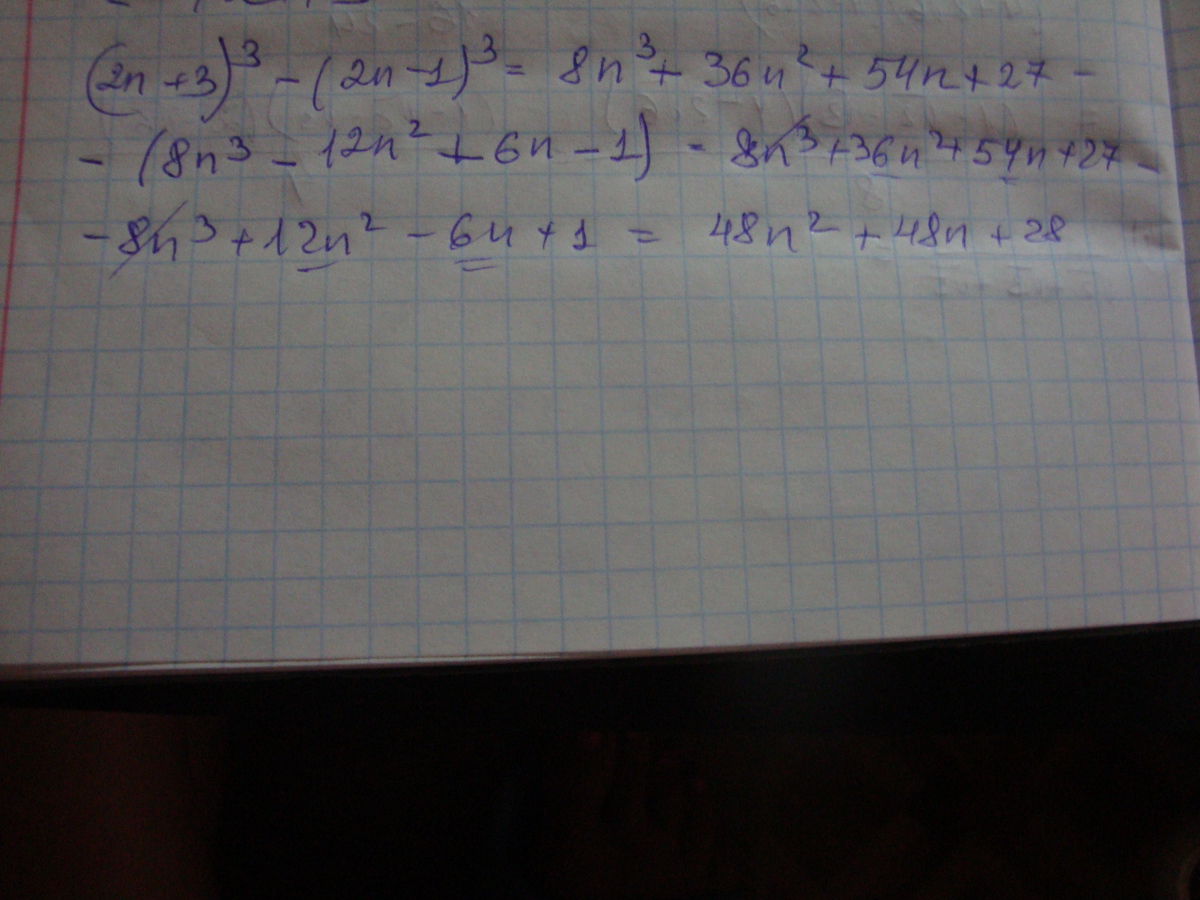 (2n+3)³ - (2n-1)³ = 8n³ + 36n² + 54n + 27 -
- (8n³ - 12n² + 6n - 1) = 8n³ + 36n² + 54n + 27 -
- 8n³ + 12n² - 6n + 1 = 48n² + 48n + 28